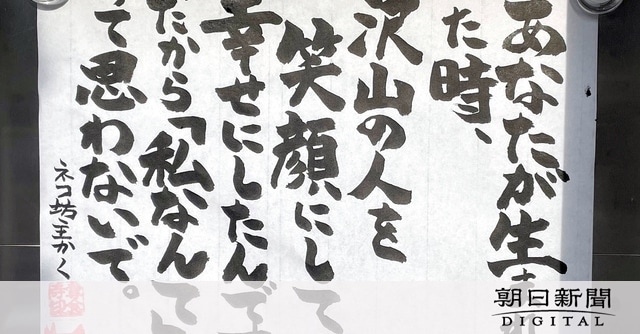 あなたが生ま
た時、
沢山の人を
笑顔にして
幸せにしたんで
だから「私なんて
て思わないで。
ネコ坊主かく
朝日新聞
DIGITAL